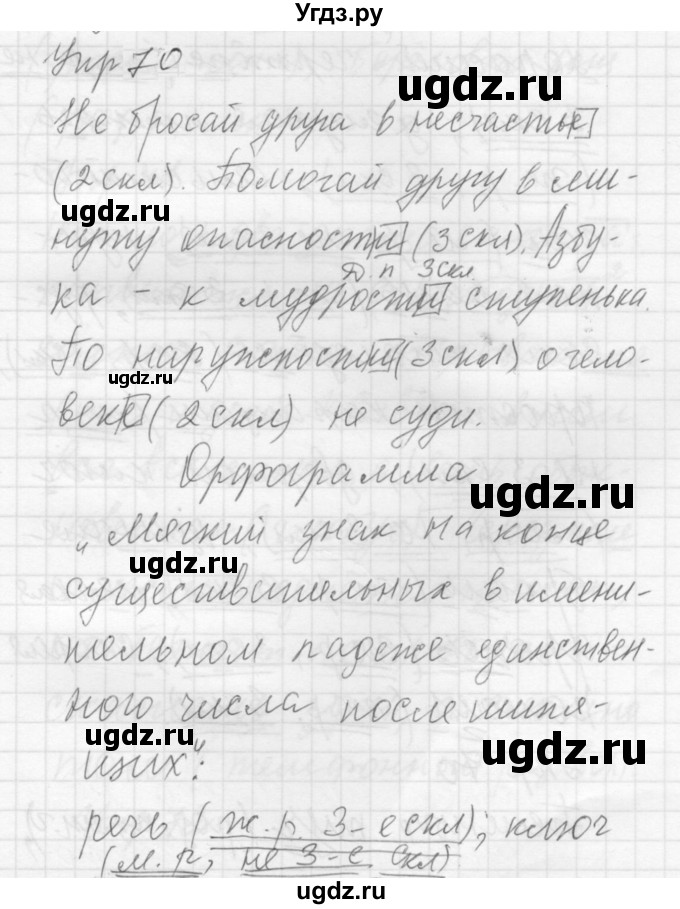 Угдз.ру
Упр 70
ugdz.ru
Не бросай друга в несчастье
(2 скл). Помогай другу в ми-
ugdz.ru
нуту опасности (3 скл). Азбу-
Д. п 3 скл
ка - к мудрости ступенька.
ugdz.ru
По наружности (3 скл) о чело-
ugdz.ru
веке (2 скл) не суди.
Орфограмма
ugdz.ru
„Мягкий знак на конце
ugdz.ru
существительных в имени-
тельном падеже единствен-
ного числа после шипя-
ugdz.ru
ugdz.ru
щих“:
речь (ж. р. 3-е скл); ключ
(м. р., не 3-е скл)
ugdz.ru